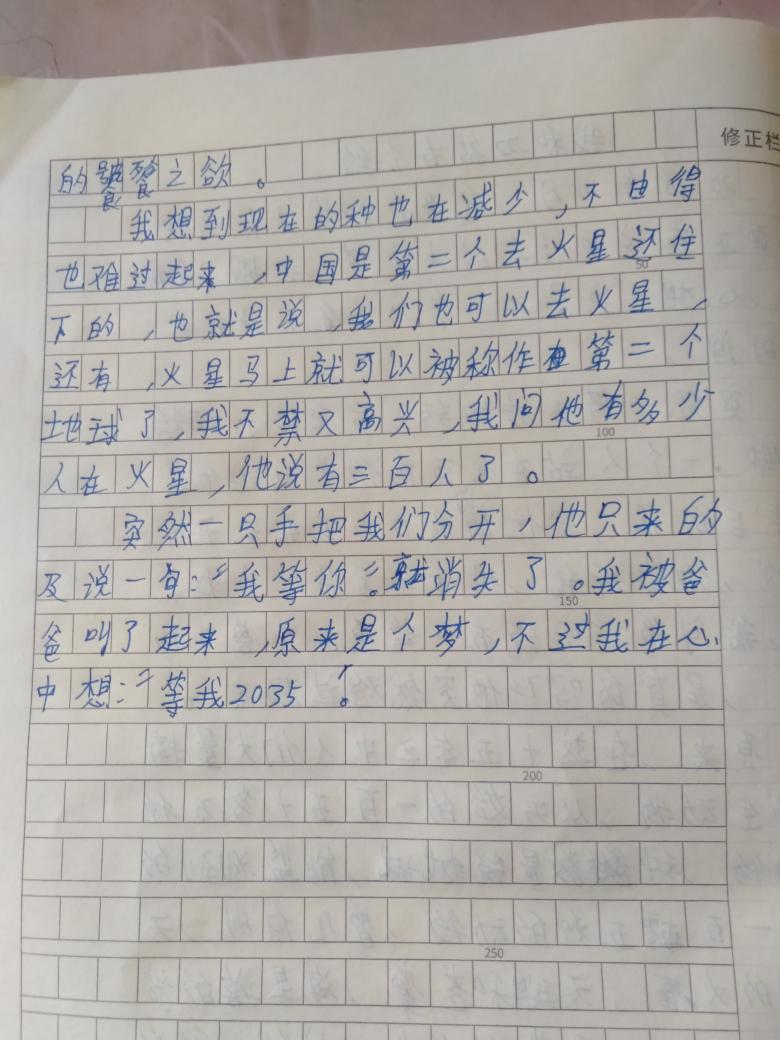 修正栏
的饕餮之欲。
我想到现在的种也在减少，不由得
也难过起来，中国是第二个去火星还住
50
下的，也就是说，我们也可以去火星，
还有，火星马上就可以被称作第二个
地球了，我不禁又高兴，我问他有多少
100
人在火星，他说有三百人了。
突然一只手把我们分开，他只来的
及说一句：“我等你”。就消失了。我被爸
150
爸叫了起来，原来是个梦，不过我在心
中想：“等我2035”！
200
250